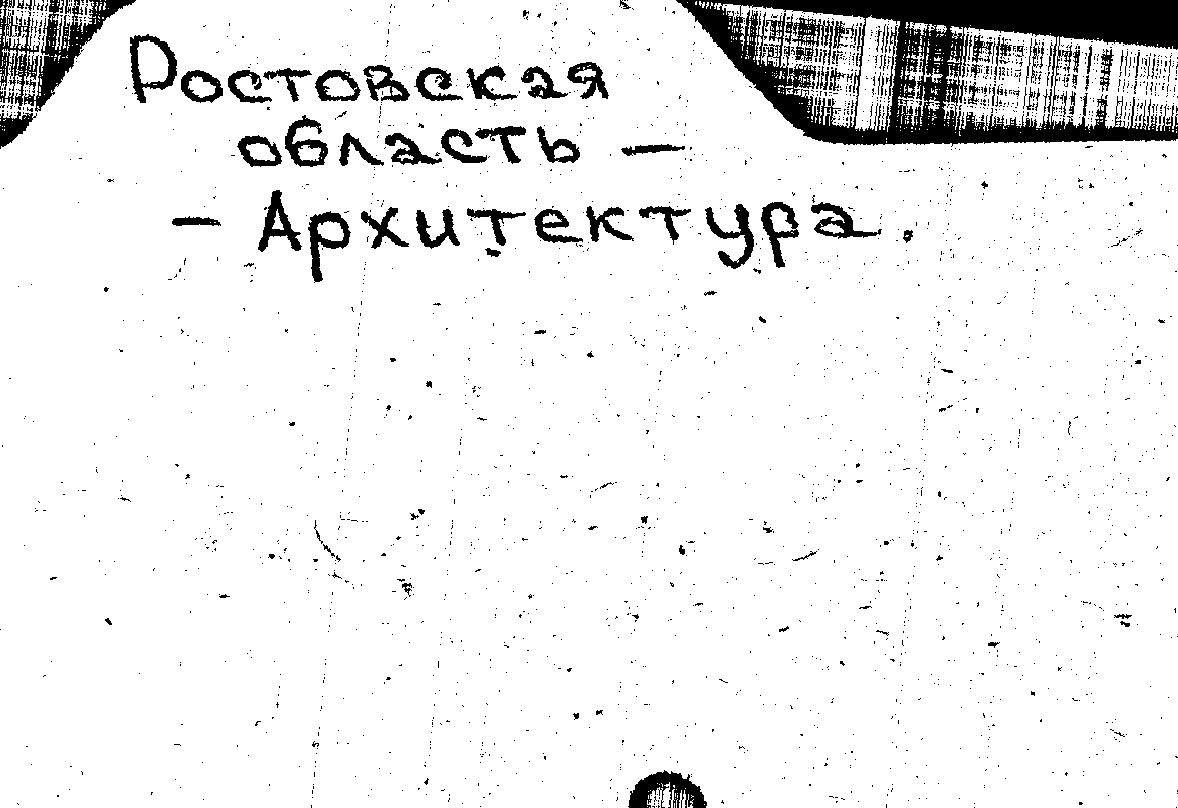 Ростовская
область –
– Архитектура.